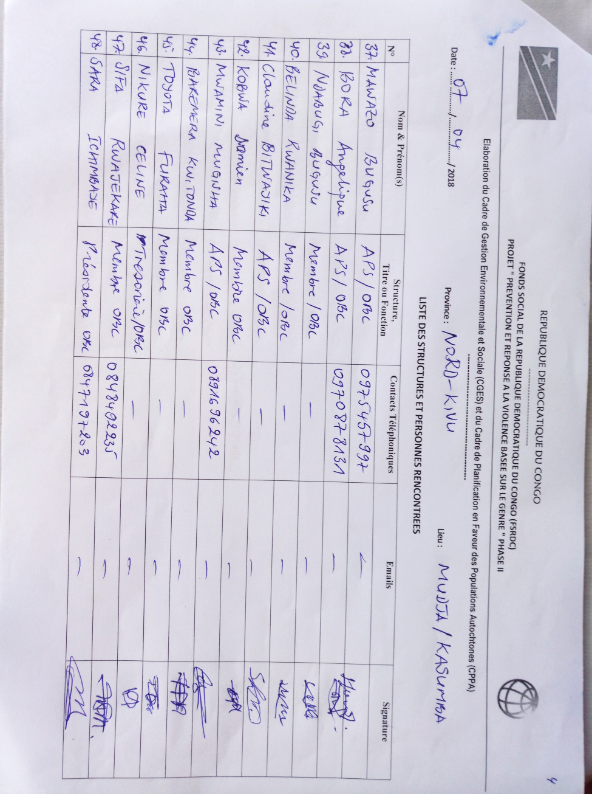 4
REPUBLIQUE DEMOCRATIQUE DU CONGO
FONDS SOCIAL DE LA REPUBLIQUE DEMOCRATIQUE DU CONGO (FSRDC)
PROJET " PREVENTION ET REPONSE A LA VIOLENCE BASEE SUR LE GENRE " PHASE II
Elaboration du Cadre de Gestion Environnementale et Sociale (CGES) et du Cadre de Planification en Faveur des Populations Autochtones (CPPA)
Date : 07 / 04 / 2018 Province : NORD-KIVU Lieu : MUDJA / KASUMBA
LISTE DES STRUCTURES ET PERSONNES RENCONTREES
N° Nom & Prénom(s) Structure, Titre ou Fonction Contacts Téléphoniques Emails Signature
37. MAWAZO BUGUSU APS / OBC 0975457997 —
38. BORA Angelique APS / OBC 0970878131 —
39. NDABUGI BUGUSU Membre / OBC — —
40. BELINDA RWANIKA Membre / OBC — —
41. Claudine BITWAJIKI APS / OBC — —
42. KOBWA Damien Membre OBC — —
43. MWAMINI MUGISHA APS / OBC 0891696242 —
44. BAKEMERA KWITONDA Membre OBC — —
45. TOYOTA FURAHA Membre OBC — —
46. NIKURE CELINE Tresorière/OBC — —
47. SIFA RWAJEKARE Membre OBC 0848402235 —
48. SARA ICHIMBAJE Présidente OBC 0847197203 —